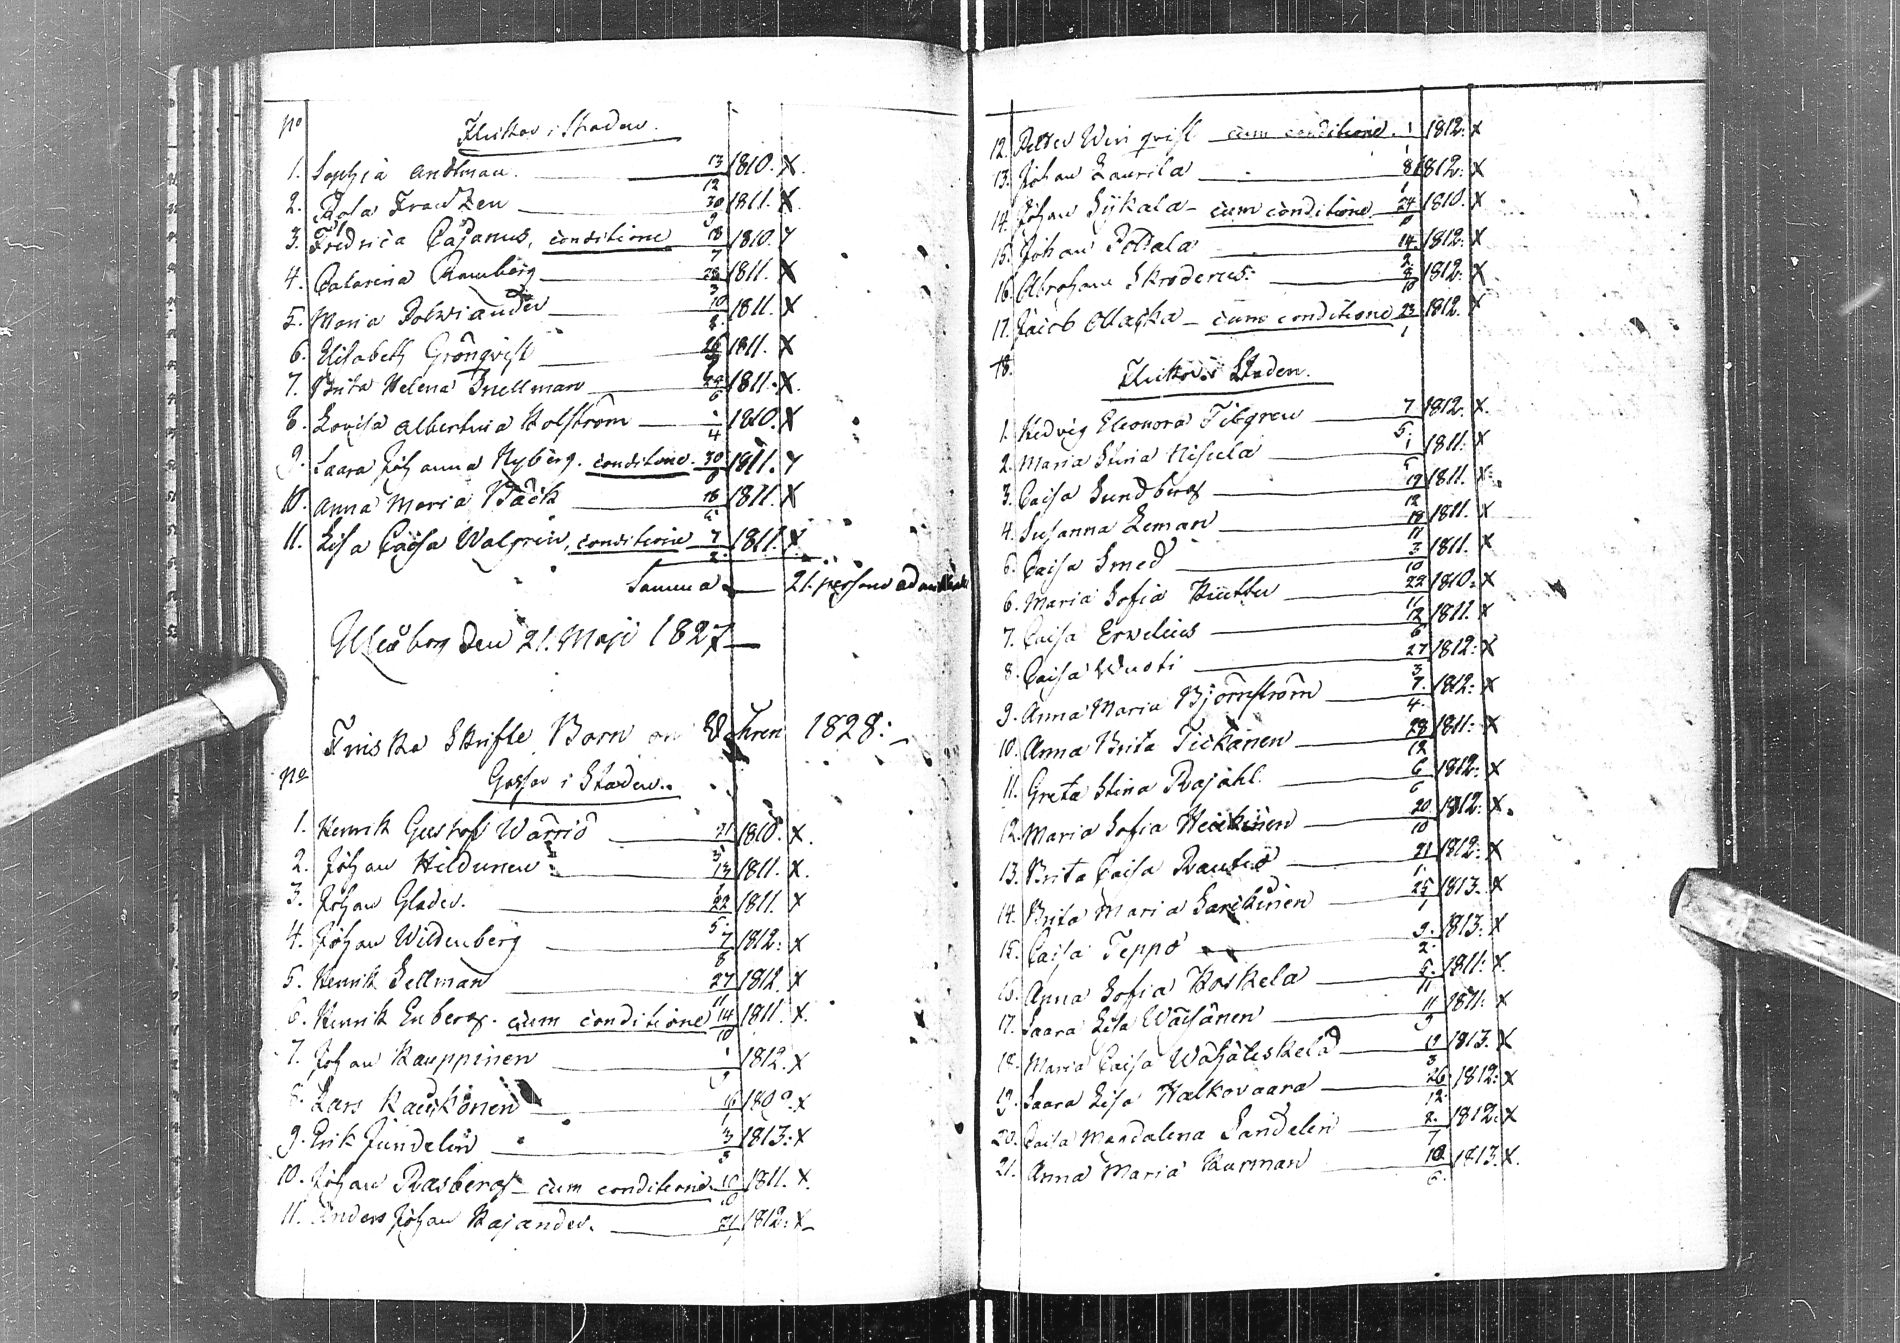 No Flickor i Staden.
1. Sophia Andtman. 13/12 1810. X
2. 30/9 1811. X
3. Fredrica Cajanus, conditione 18/7 1810.
4. Catarina Ramberg 28/3 1811. X
5. Maria 10/8 1811. X
6. Elisabeth Grönqvist 1811. X
7. Brita Helena Snellman 1811. X
8. Lovisa Albertina Holström 1/4 1810. X
9. Saara Johanna Nyberg. conditione. 30 1811.
10. Anna Maria Bäck 1811. X
11. Lisa Caisa Walgren, conditione 7/2 1811. X
Summa 21. personer
Uleåborg den 21. Maji 1827
Finska Skrifte Barn 1828:
No Gossar i Staden.
1. Henrik Gustaf Warriö 21/3 1810. X.
2. Johan Hildunen 13 1811. X.
3. Johan Glader. 22/5 1811. X
4. Johan Wildenberg 7/8 1812: X
5. Henrik Sellman 27/11 1812. X
6. Henrik Enberg. cum conditione 14/10 1811. X.
7. Johan Kauppinen 1812. X
8. Lars Kauskonen 16 X
9. Erik Jundelin 3 1813: X
10. Johan Rasberg cum conditione 10/10 1811. X.
11. Anders Johan Kajander. 21/1 1812: X
12. Petter Winqvist cum conditione. 1/1 1812: X
13. Johan Laurila 8/1 1812: X
14. Johan Sykala cum conditione 24 1810. X
15. Johan 14/2 1812: X
16. Abraham Skroderus: 8/10 1812: X
17. Jacob Ollaska cum conditione 23/1 1812. X
18. Flickor i Staden.
1. Hedvig Eleonora 7/5 1812. X.
2. Maria Stina Niskala 1 1811. X
3. Caisa Sundberg 19/12 1811. X
4. Susanna Leman 18/11 1811. X
5. Caisa Smed 3/10 1811. X
6. Maria Sofia 22/11 1810. X
7. Caisa Ervelius 12/6 1811. X
8. Caisa Wuoti 27/3 1812: X
9. Anna Maria Björnström 7/4 1812: X
10. Anna Brita Tickanen 28/12 1811: X
11. Greta Stina Rajahl. 6/6 1812: X
12. Maria Sofia Heickinen 20/10 1812: X.
13. Brita Caisa Rautio 21/1 1812: X
14. Brita Maria Sarckinen 25/1 1813. X
15. Caisa Teppo 9/2 1813: X
16. Anna Sofia Koskela 5/11 1811: X
17. Saara Lisa Wäisänen 11/9 1811: X
18. Maria Caisa 19/3 1813. X
19. Saara Lisa Halkovaara 26/12 1812: X
20. Caisa Magdalena Sandelin 2/7 1812: X
21. Anna Maria Kurman 1813. X.